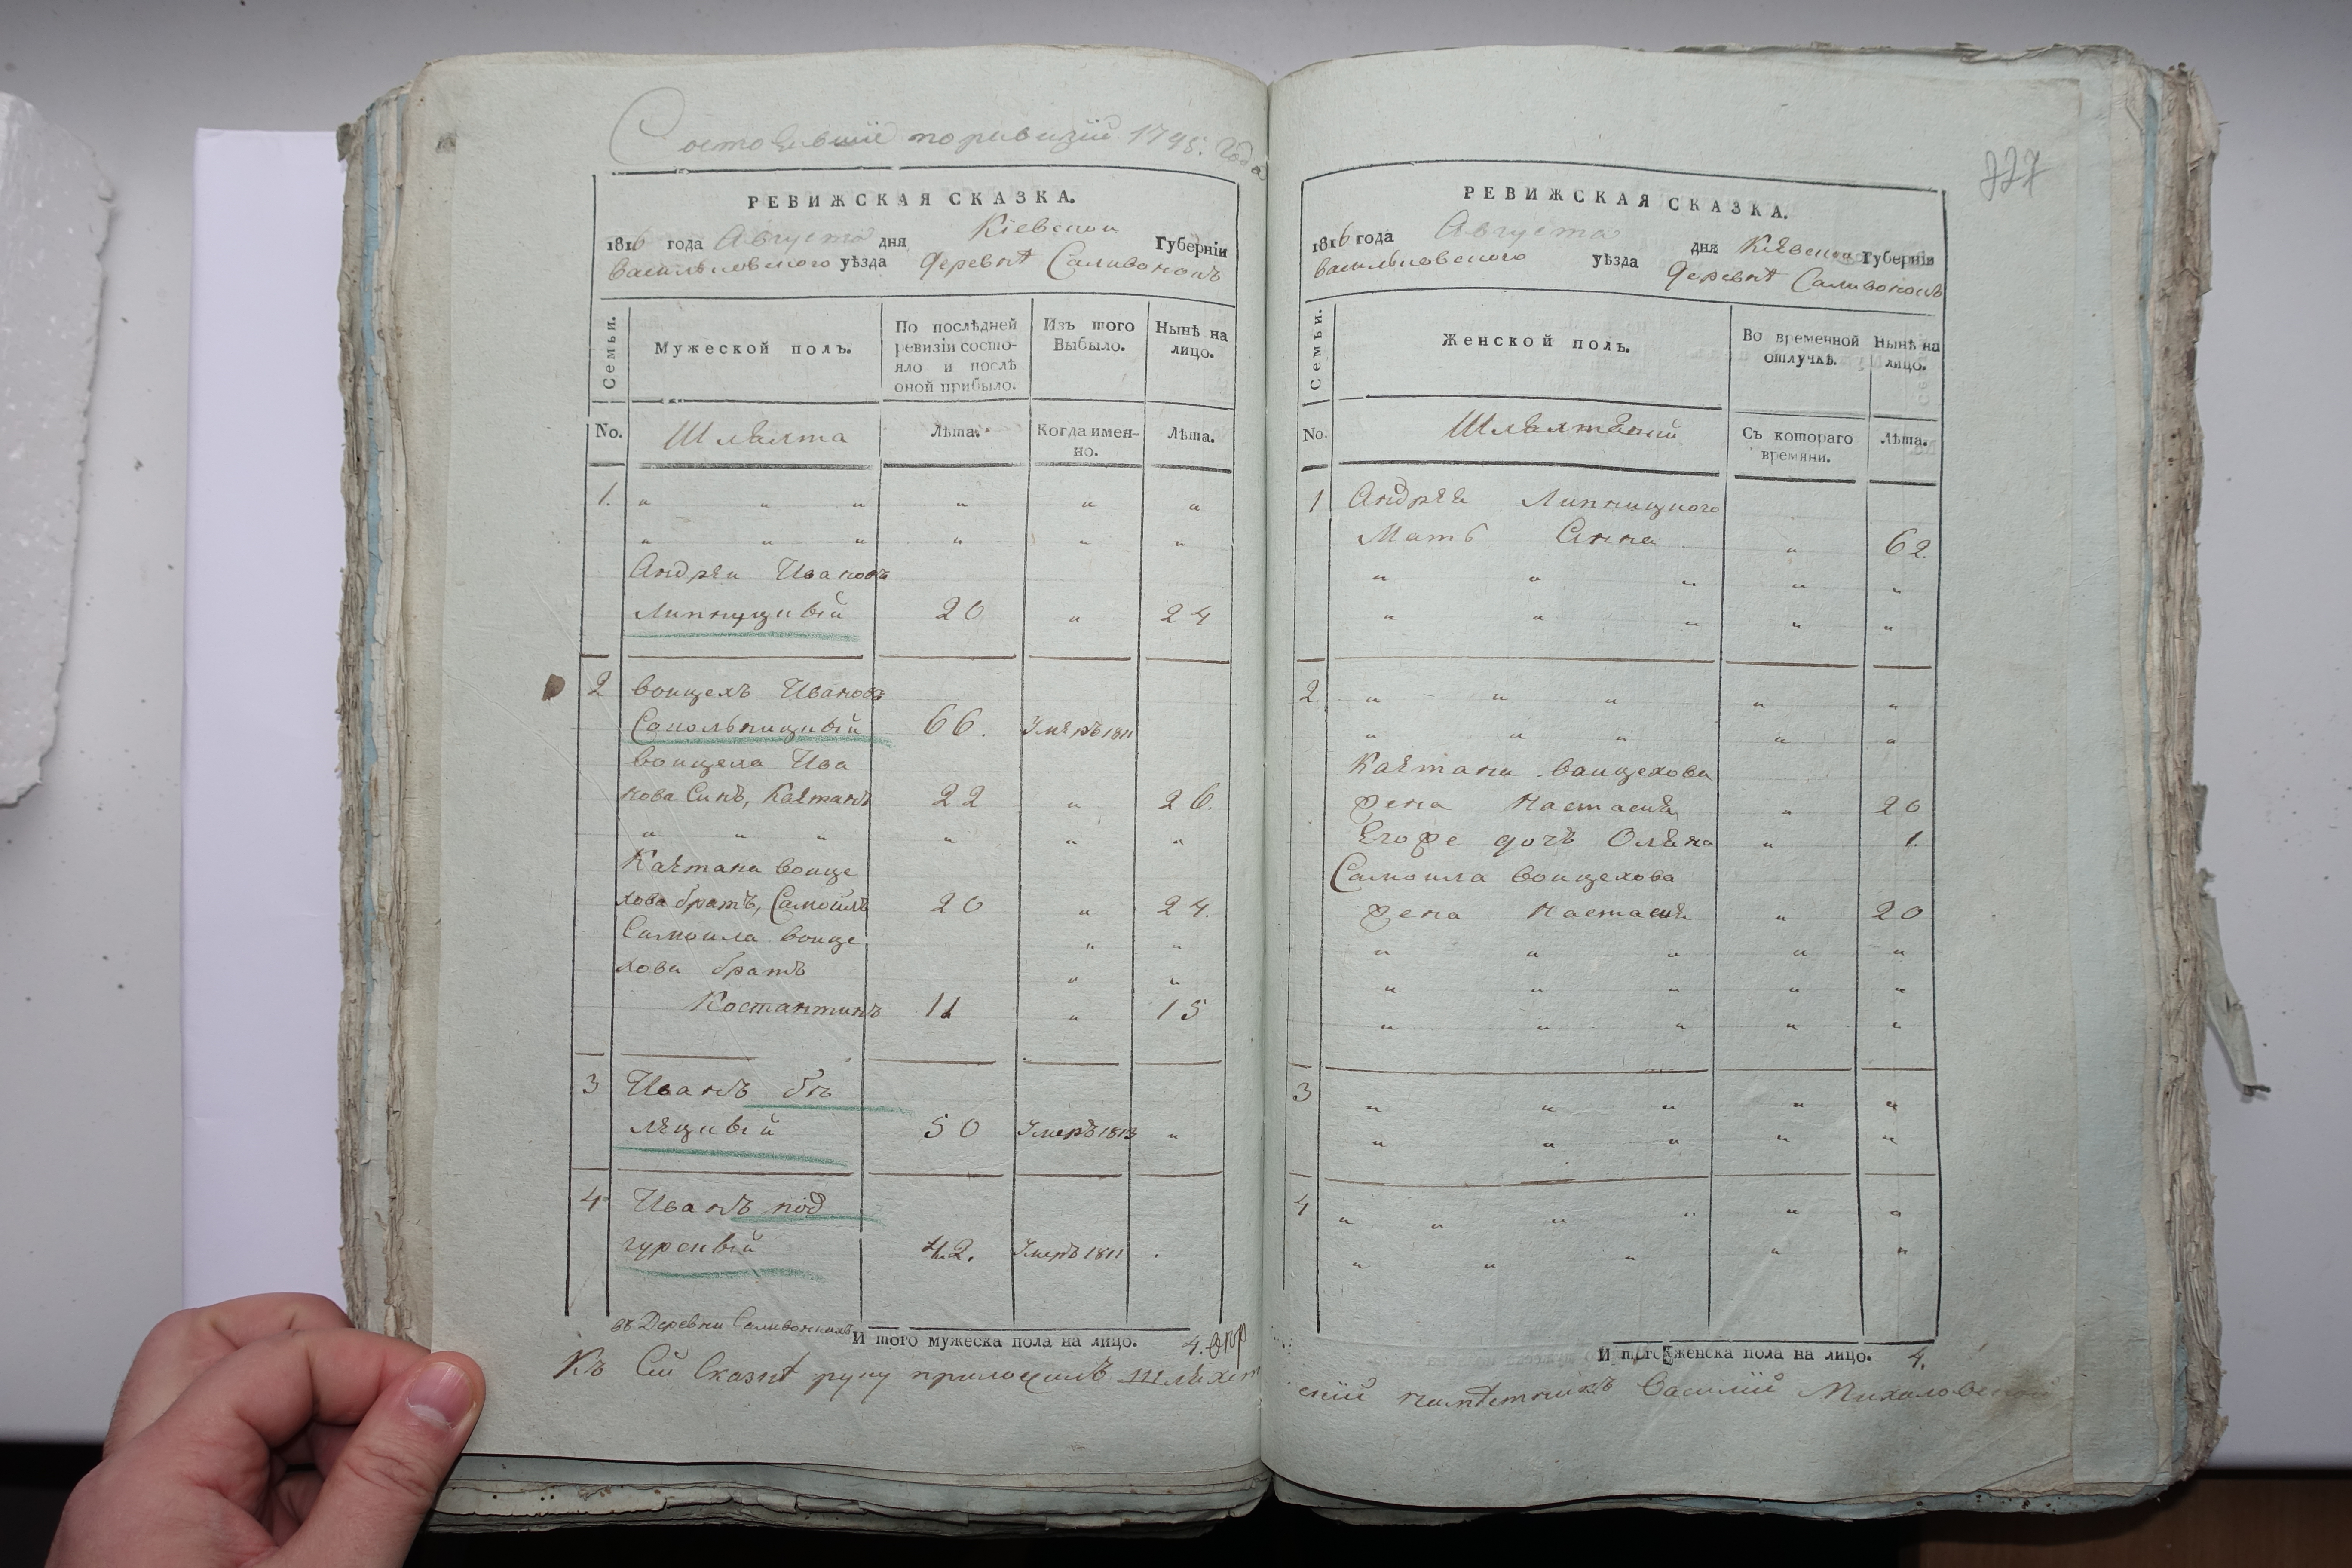 Состоявшие поревизiи 1795. года
РЕВИЖСКАЯ СКАЗКА.
1816 года Августа дня Кiевской Губернiи
васильковского уѣзда деревнѣ Саливонокъ
Семьи.
Мужеской полъ.
По послѣдней ревизiи состо-
яло и послѣ оной прибыло.
Изъ того Выбыло.
Нынѣ на лицо.
No. Шляхта Лѣта. Когда имен-но. Лѣта.
1. " " " " " "
" " " " " "
Андрѣи Ивановъ
Липницкiй 20 " 24
2 воицехъ Ивановъ
Сокольницкiй 66. Умѣръ 1811
воицеха Ива
нова Синъ, Каѣтанъ 22 " 26.
" " " " " "
Каѣтана воице
хова братъ, Самойлъ 20 " 24.
Самоила воице " "
хова братъ " "
Костантинъ 11 " 15
3 Иванъ бѣ
лѣцкiй 50 Умеръ 1813 "
4 Иванъ под
гурскiй 42. Умеръ 1811 .
въ Деревни Саливонкахъ И того мужеска пола на лицо. 4.
Къ Сiй Сказкѣ руку приложилъ шляхет
727
РЕВИЖСКАЯ СКАЗКА.
1816 года Августа дня Кiевской Губернiи
васильковского уѣзда деревнѣ Саливонокъ
Семьи.
Женской полъ.
Во временной отлучкѣ.
Нынѣ на лицо.
No. Съ котораго времяни. Лѣта.
1 Андрѣя Липницкого
Мать Анна " 62.
" " " " "
" " " " "
2. " " " " "
" " " " "
Каѣтана воицехова
жена Настасiя " 20
Егоже дочь Олѣна " 1.
Самоила воицехова
жена Настасiя " 20
" " " " "
" " " " "
" " " " "
3 " " " " "
" " " " "
4 " " " " " "
" " " " "
И того женска пола на лицо. 4.
скiй намѣстникъ Василiй Михаловский